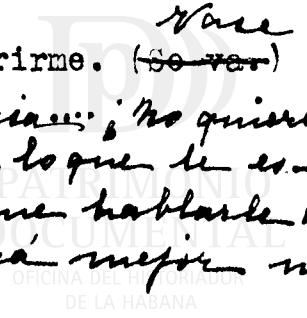 Vase
rirme. (Se va.)
sia.... ¡No quiere
lo que le es
me hablarle
rá mejor
PATRIMONIO
DOCUMENTAL
OFICINA DEL HISTORIADOR
DE LA HABANA